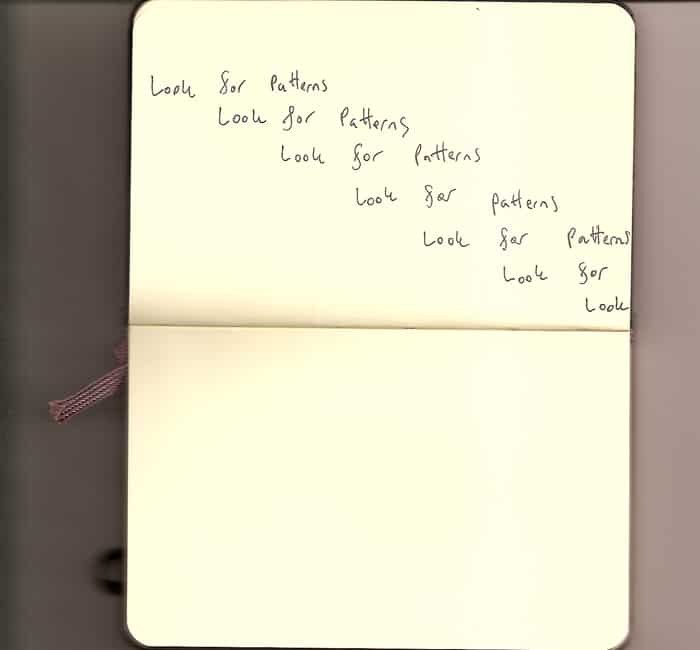 Look for Patterns
Look for Patterns
Look for Patterns
Look for patterns
Look for Patterns
Look for
Look